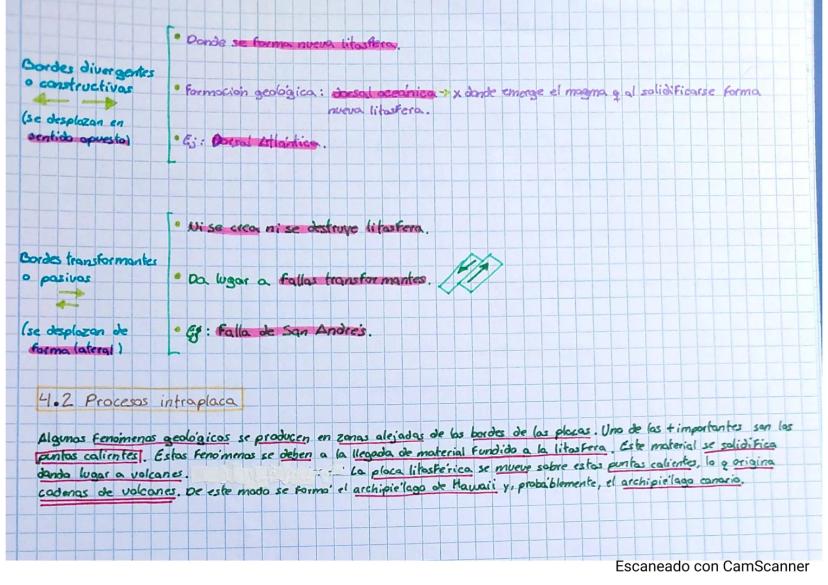 Bordes divergentes
o constructivas
(se desplazan en
sentido apuesto)
• Donde se forma nueva litosfera.
• Formación geológica: dorsal oceánica → x donde emerge el magma q al solidificarse forma
nueva litosfera.
• Ej: Dorsal Atlántica.
Bordes transformantes
o pasivas
(se desplazan de
forma lateral)
• Ni se crea ni se destruye litosfera.
• Da lugar a fallas transformantes.
• Ej: Falla de San Andrés.
4.2 Procesos intraplaca
Algunas fenómenos geológicos se producen en zonas alejadas de las bordes de las placas. Uno de los + importantes son los
puntos calientes. Estas fenómenos se deben a la llegada de material fundido a la litosfera. Este material se solidifica
dando lugar a volcanes. La placa litosférica se mueve sobre estos puntos calientes, lo q origina
cadenas de volcanes. De este modo se formó el archipiélago de Hawaii y, probáblemente, el archipiélago canario.
Escaneado con CamScanner